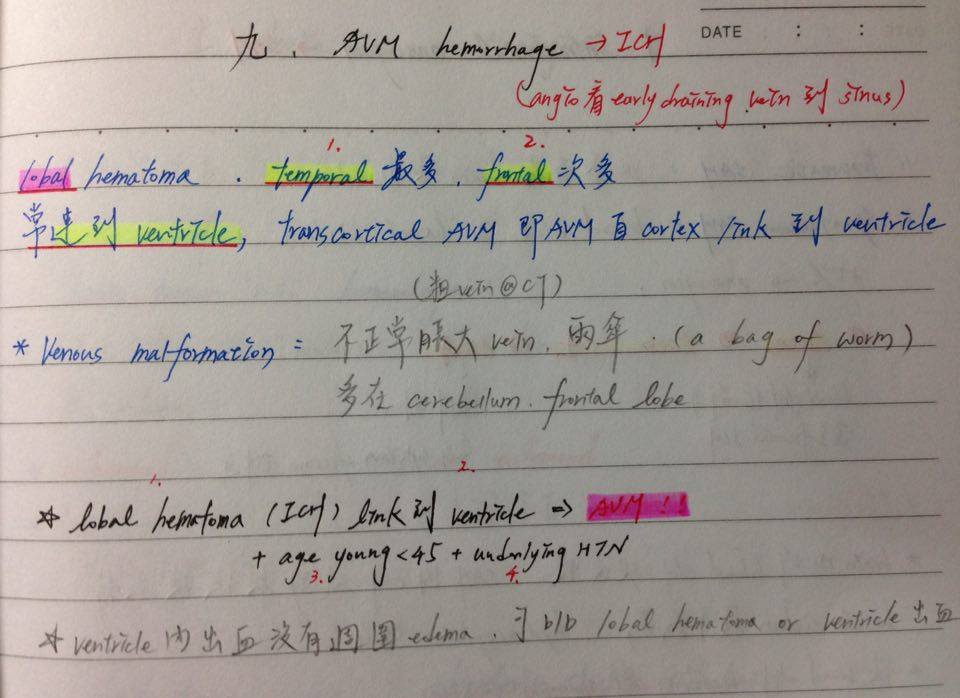 DATE : :
九. AVM hemorrhage → ICH
(angio 看 early draining vein 到 sinus)
1. 2.
lobal hematoma . temporal 最多 . frontal 次多
常連到 ventricle, transcortical AVM 即 AVM 自 cortex link 到 ventricle
(粗 vein @ CT)
* Venous malformation = 不正常脹大 vein. 雨傘. (a bag of worm)
多在 cerebellum. frontal lobe
1. 2.
☆ lobal hematoma (ICH) link 到 ventricle ⇒ AVM !!
+ age young <45 + underlying HTN
3. 4.
☆ ventricle 內出血沒有周圍 edema. 可 b/b lobal hematoma or ventricle 出血